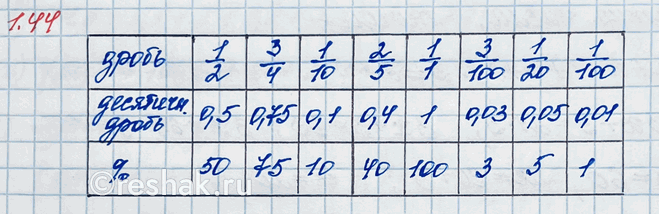 1.44
дробь 1/2 3/4 1/10 2/5 1/1 3/100 1/20 1/100
десятичн. дробь 0,5 0,75 0,1 0,4 1 0,03 0,05 0,01
% 50 75 10 40 100 3 5 1
©reshak.ru